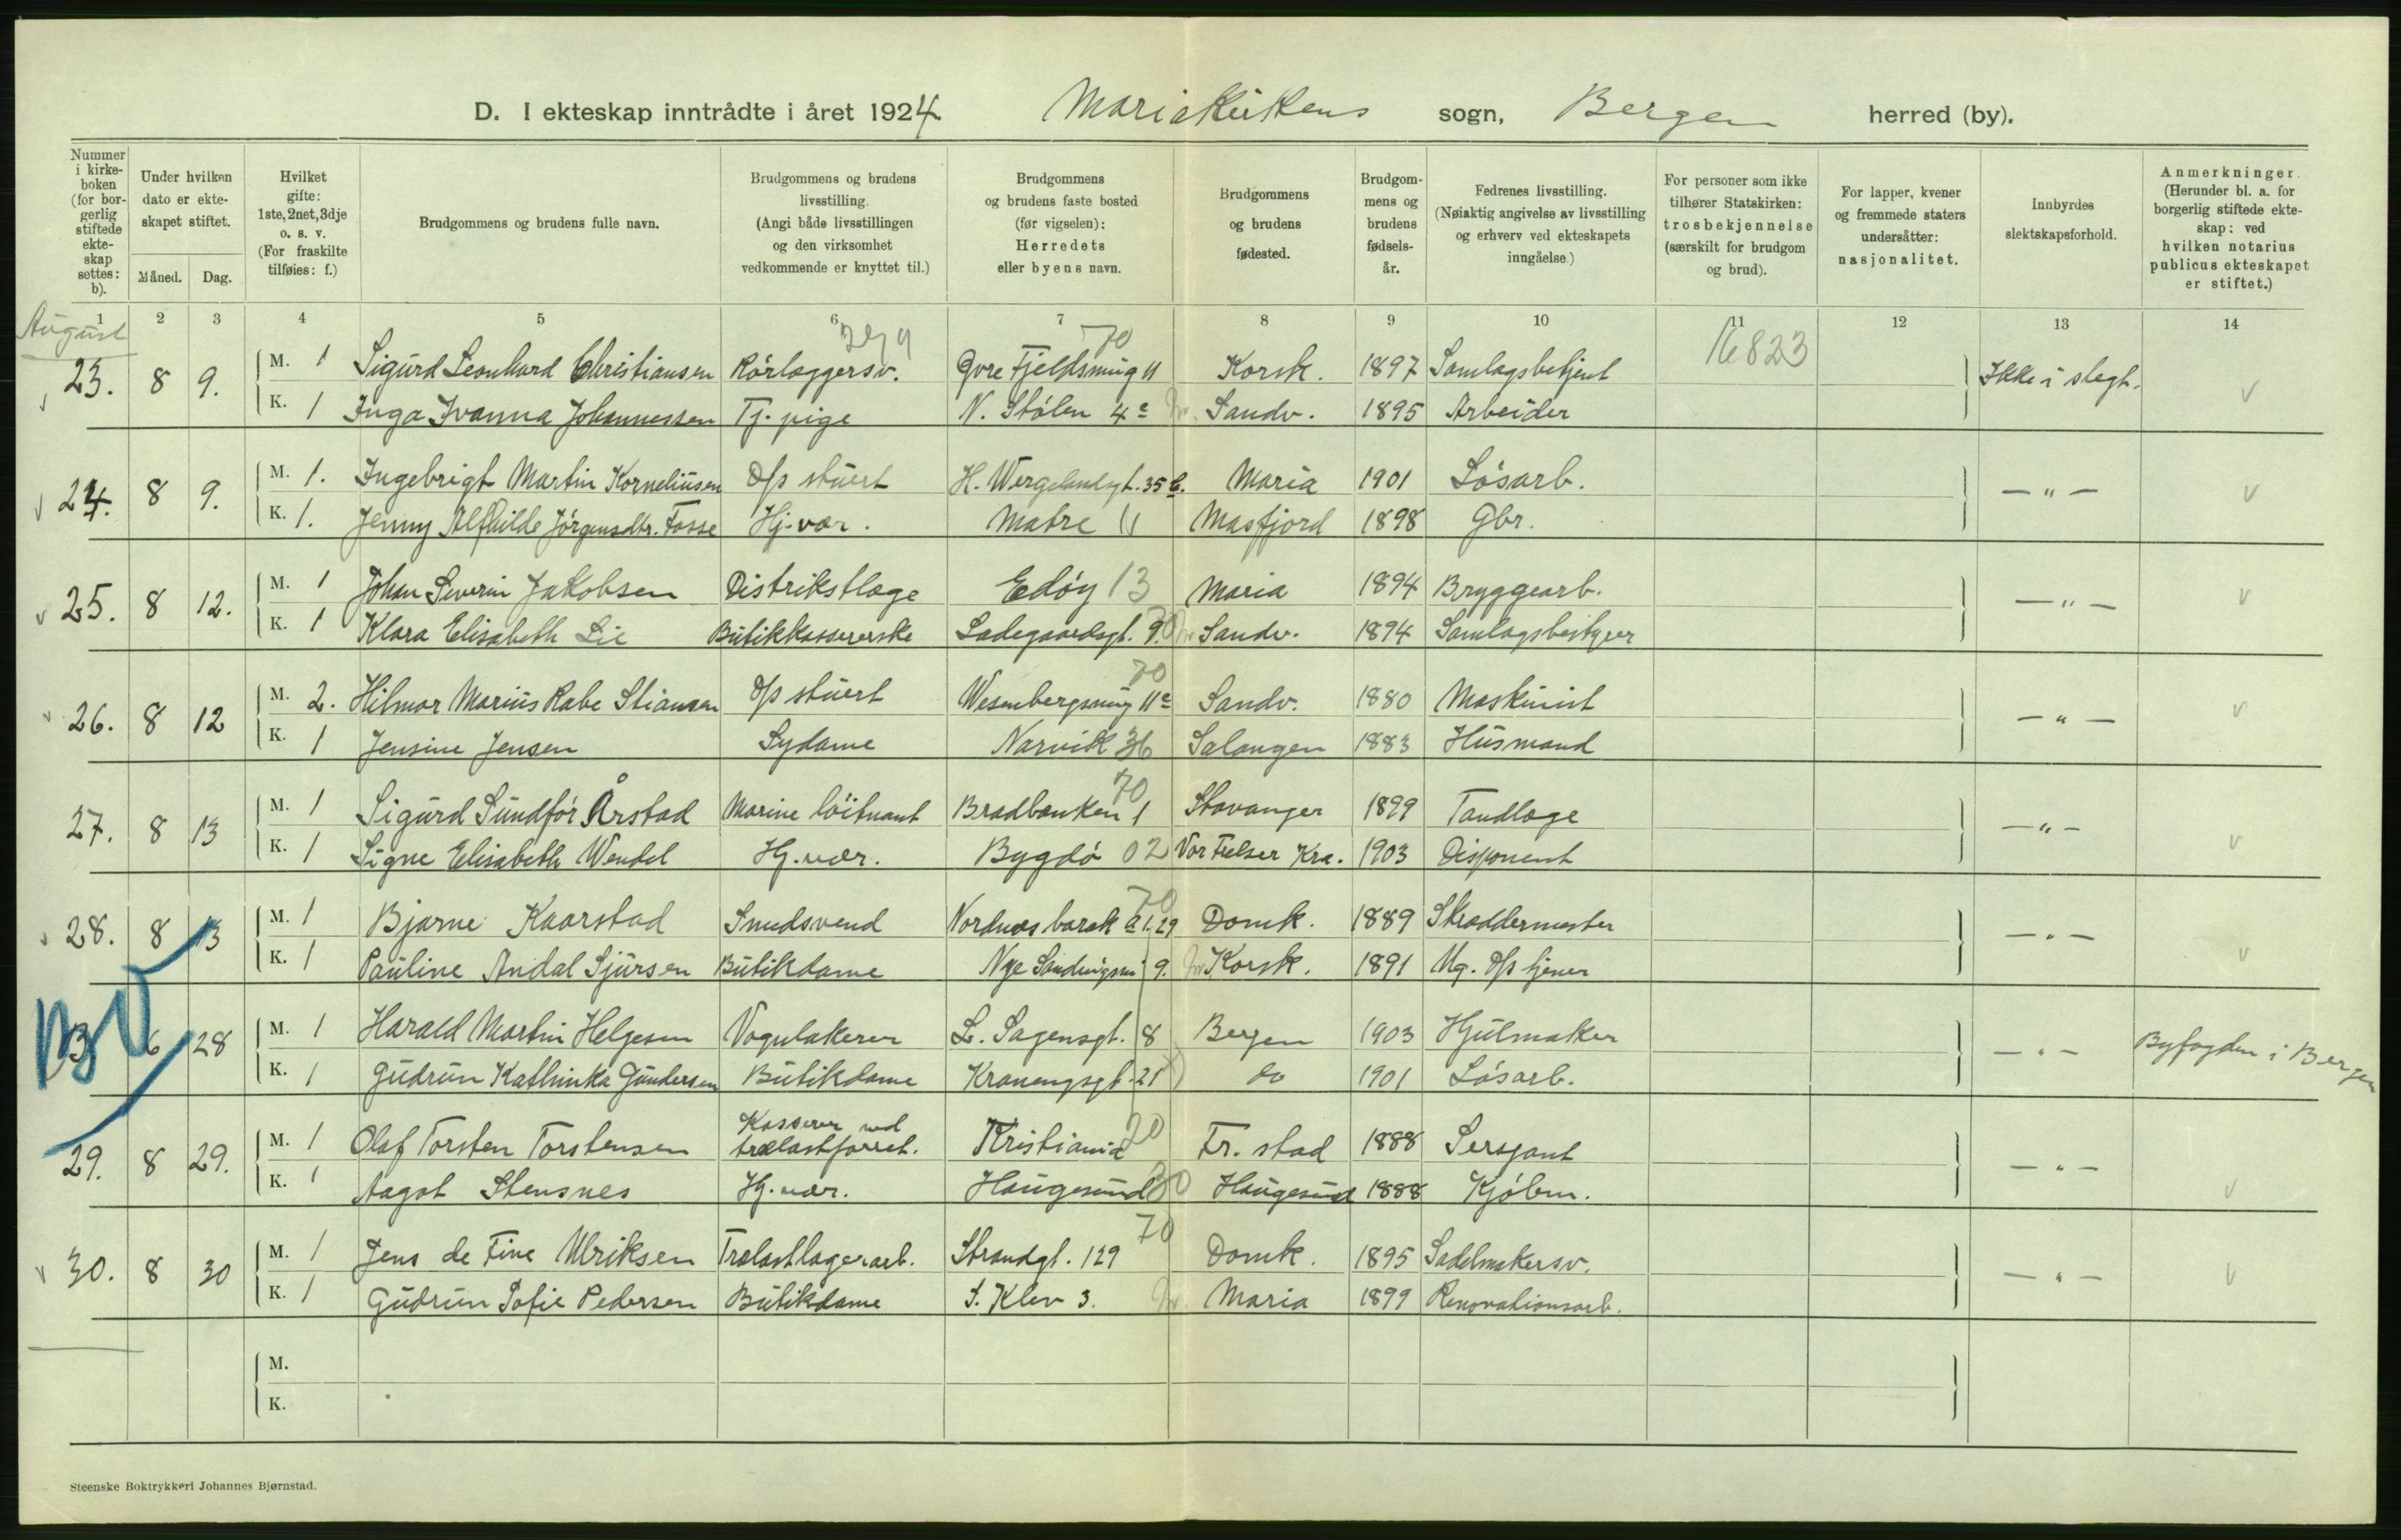 D. I ekteskap inntrådte i året 1924 Mariakirkens sogn, Bergen herred (by).
Nummer i kirkeboken (for borgerlig stiftede ekteskap settes: b).
Under hvilken dato er ekteskapet stiftet.
Måned. Dag.
Hvilket gifte: 1ste, 2net, 3dje o. s. v. (For fraskilte tilføies: f.)
Brudgommens og brudens fulle navn.
Brudgommens og brudens livsstilling. (Angi både livsstillingen og den virksomhet vedkommende er knyttet til.)
Brudgommens og brudens faste bosted (før vigselen): Herredets eller byens navn.
Brudgommens og brudens fødested.
Brudgommens og brudens fødselsår.
Fedrenes livsstilling. (Nøiaktig angivelse av livsstilling og erhverv ved ekteskapets inngåelse.)
For personer som ikke tilhører Statskirken: trosbekjennelse (særskilt for brudgom og brud).
For lapper, kvener og fremmede staters undersåtter: nasjonalitet.
Innbyrdes slektskapsforhold.
Anmerkninger. (Herunder bl. a. for borgerlig stiftede ekteskap: ved hvilken notarius publicus ekteskapet er stiftet.)
1 2 3 4 5 6 7 8 9 10 11 12 13 14
August 70 16823
23. 8 9. M. 1 Sigurd Leonhard Christiansen Rörlæggersv. Øvre Fjeldsmug 11 Korsk. 1897 Samlagsbetjent Ikke i slegt.
K. 1 Inga Ivanna Johannessen Tj. pige N. Stølen 4c Sandv. 1895 Arbeider
24. 8 9. M. 1. Ingebrigt Martin Korneliusen D/s stuert H. Wergelandsgt. 35 b. Maria 1901 Lösarb. — " —
K. 1. Jenny Alfhilde Jörgensdtr. Fosse Hj. vær. Matre 11 Masfjord 1898 Gbr.
25. 8 12. M. 1 Johan Severin Jakobsen Distrikstlæge Edöy 13 Maria 1894 Bryggearb. — " —
K. 1 Klara Elisabeth Lie Butikkassererske Ladegaardsgt. Sandv. 1894 Samlagsbestyrer
70
26. 8 12 M. 2. Hilmar Marius Rabe Stiansen D/s stuert Wesenbergsmug 11c Sandv. 1880 Maskinist — " —
K. 1 Jensine Jensen Sydame Narvik 36 Salangen 1883 Husmand
70
27. 8 13 M. 1 Sigurd Sundför Årstad Marine löitnant Bradbænken 1 Stavanger 1899 Tandlæge — " —
K. 1 Signe Elisabeth Wendel Hj. vær. Bygdö 02 Vor Frelser Kra. 1903 Disponent
70
28. 8 13 M. 1 Bjarne Kaarstad Smedsvend Nordnæs barak 29 Domk. 1889 Skræddermester — " —
K. 1 Pauline Andal Sjursen Butikdame Nye Sandvigsvei 9. Korsk. 1891 Ug. D/s tjener
B 3 6 28 M. 1 Harald Martin Helgesen Vognlakerer L. Sagensgt. 8 Bergen 1903 Hjulmaker — " — Byfogden i Bergen
K. 1 Gudrun Kathinka Gundersen Butikdame Kroneng​sgt. 21 do 1901 Lösarb.
29. 8 29. M. 1 Olaf Torsten Torstensen Kasserer ved trælastforret. Kristiania 20 Fr. stad 1888 Sersjant — " —
K. 1 Aagot Stensnes Hj. vær. Haugesund Haugesund 1888 Kjöbm.
70
30. 8 30 M. 1 Jens de Fine Ulriksen Trælastlagerarb. Strandgt. 129 Domk. 1895 Sadelmakersv. — " —
K. 1 Gudrun Sofie Pedersen Butikdame S. Klev 3. Maria 1899 Renovationsarb.
M.
K.
Steenske Boktrykkeri Johannes Bjørnstad.